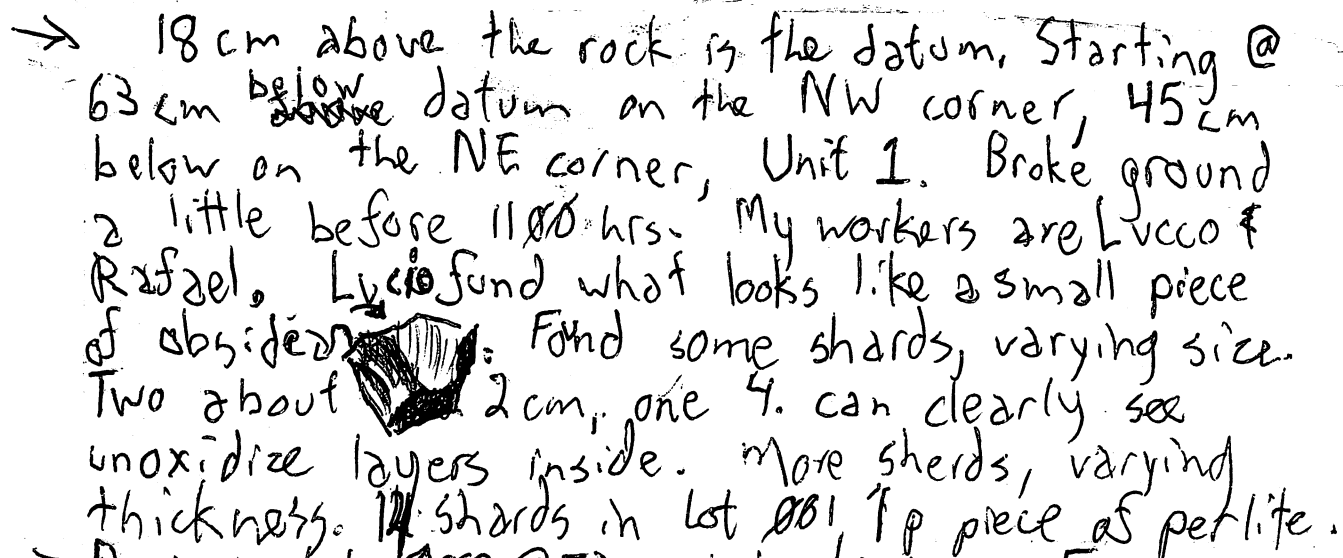 → 18 cm above the rock is the datum. Starting @
63 cm below datum on the NW corner, 45 cm
below on the NE corner, Unit 1. Broke ground
a little before 1100 hrs. My workers are Lucco &
Rafael. Lucio fund what looks like a small piece
of obsidean. Fond some shards, varying size.
Two about 2 cm, one 4. can clearly see
unoxidize layers inside. More sherds, varying
thickness. 14 shards in Lot 001, 1 piece of perlite.